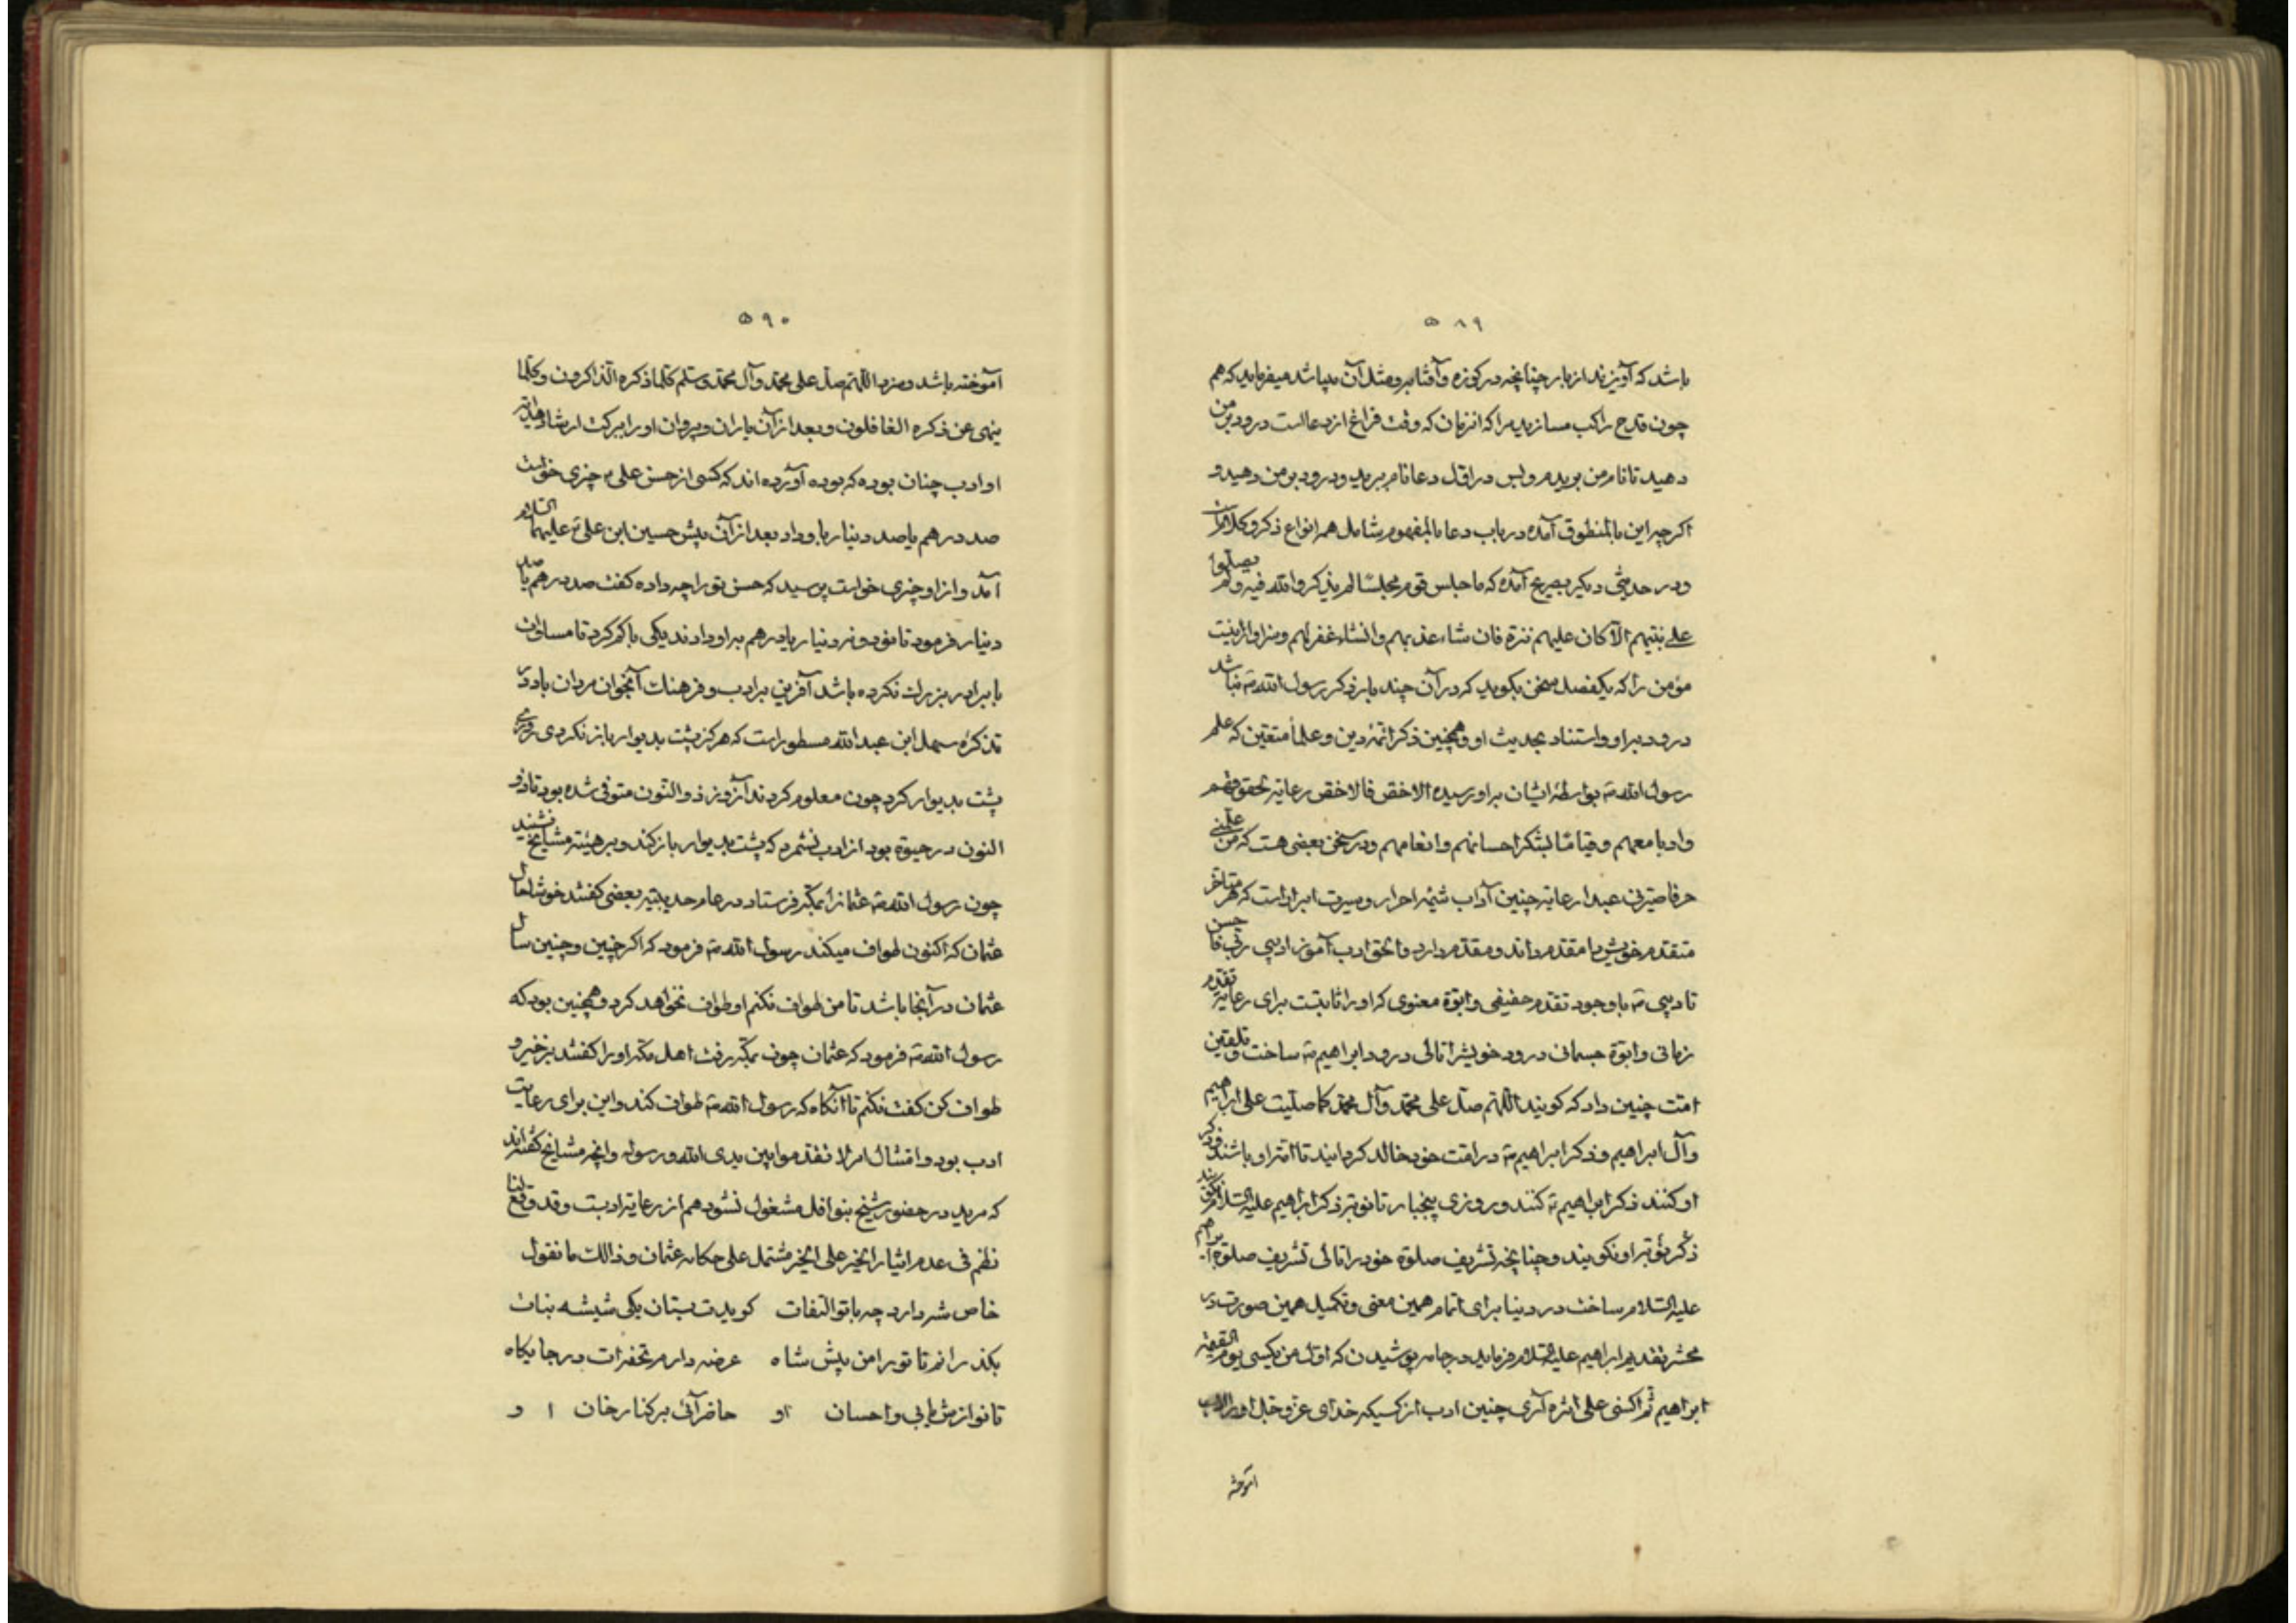 ۵۸۹
باشد که آویزند از بار چنانچه در کوزه و آفتابه و مثل آن میباشد میفرماید که هم
چون قدح راکب مسازید مرا که از زمان که وقت فراغ از دعا است درود بر من
دهید تا نام من بریدم و بس در اوّل دعا نام برید و درود بر من دهید و
اکرچه این بالمنطوق آمده در باب دعا بالمفهوم شامل همه انواع ذکر و کلام است
و در حدیثی دیکر بصریح آمده که ما جلس قوم مجلسًا لم یذکروا الله فیه و لم یصلّوا
علی نبیّهم الّا کان علیهم ترة فان شاء عذبهم و انشاء غفر لهم و سزاوار نیست
مؤمن را که یکفصل سخن بکوید که در آن چند بار ذکر رسول الله ص نباشد
درود بر او و استناد بحدیث او و همچنین ذکر ائمّه دین و علماء متقین که علم
رسول الله ص بواسطهٔ ایشان بر او رسیده الاخصّ فالاخصّ رعایة لحقوقهم
و ادبا معهم و قیامًا بشکر احسانهم و انعامهم و در سخن بعضی هست که من علّمنی
حرفا صیّرنی عبدا رعایة چنین آداب شیمهٔ احرار و سیرت ابرار است که هر متأخر
متقدم خویش را مقدم داند و مقدم دارد و الحق ادب آموز ادبنی ربّی فاحسن
تادیبی ص با وجود تقدم حقیقی و ابوّة معنوی که او را ثابتست برای رعایة تقدم
زمانی و ابوّة جسمانی درود خویش را تالی درود ابراهیم ع ساخت و تلقین
امّت چنین داد که کویند اللّهم صلّ علی محمّد و آل محمّد کما صلّیت علی ابراهیم
و آل ابراهیم و ذکر ابراهیم ع در امّت خود خالد کردانید تا امّة او باشند و ذکر
او کنند ذکر ابراهیم ع کنند و روزی پنجبار تا نوبتر ذکر ابراهیم علیه السلام نکویند
ذکر نوبتر او نکویند و چنانچه تشریف صلوة خود را تالی تشریف صلوة ابراهیم
علیه السلام ساخت در دنیا برای اتمام همین معنی و تکمیل همین صورت در
محشر تقدیم ابراهیم علیه السلام فرماید در جامه پوشیدن که اوّل من یکسی یوم القیمة
ابراهیم ثم اکسی علی اثره آری چنین ادب از کسیکه خدای عزّ و جلّ او را ادب
آموخته
۵۹۰
آموخته باشد و سزد اللّهم صلّ علی محمّد و آل محمّد و سلّم کلّما ذکره الذّاکرون و کلّما
ینهی عن ذکره الغافلون و بعد از آن یاران و پیروان او را ببرکت ارشاد و هدایة
او ادب چنان بوده که بوده آورده اند که کسی از حسن علی ع چیزی خواست
صد درهم یا صد دینار باو داد بعد از آن پیش حسین ابن علی ع علیهما السّلام
آمد و از او چیزی خواست پرسید که حسن تو را چه داده کفت صد درهم یا صد
دینار فرمود تا نود و نه دینار یا درهم بر او دادند یکی را کم کرد تا مساوات
با برادر بزرک نکرده باشد آفرین بر ادب و فرهنک آنجوان مردان باد در
تذکرهٔ سهل ابن عبدالله مسطور است که هرکز پشت بدیوار باز نکردی روزی
پشت بدیوار کرد چون معلوم کردند آنروز ذو النّون متوفّی شده بود تا ذو
النون در حیوة بود از ادب نشمرد که پشت بدیوار باز کند و بر هیئة مشایخ نشیند
چون رسول الله ص عثمانرا بمکّه فرستاد در عام حدیبیّه بعضی کفتند خوشا حال
عثمان که اکنون طواف میکند رسول الله ص فرمود که اکر چنین و چنین سال
عثمان در آنجا باشد تا من طواف نکنم او طواف نخواهد کرد و همچنین بود که
رسول الله ص فرمود که عثمان چون بمکّه رفت اهل مکّه او را کفتند برخیز و
طواف کن کفت نکنم تا آنکاه که رسول الله ص طواف کند و این برای رعایت
ادب بود و امتثال امر لا تقدموا بین یدی الله و رسوله و آنچه مشایخ کفته اند
که مرید در حضور شیخ بنوافل مشغول نشود هم از رعایة ادبست و قد وقع لنا
نظم فی عدم ایثار الخیر علی الخیر مشتمل علی حکایه عثمان و ذالک ما نقول
خاص شه دارد چه با تو التفات کویدت بستان یکی شیشه نبات
بکذرانم تا تو را من پیش شاه عرضه دارم تحفه ات در جایکاه
تا نوازش یابی و احسان او حاضر آئی بر کنار خان او